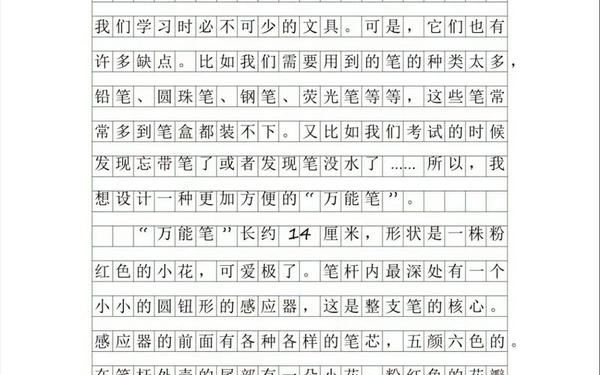 我们学习时必不可少的文具。可是，它们也有
许多缺点。比如我们需要用到的笔的种类太多，
铅笔、圆珠笔、钢笔、荧光笔等等，这些笔常
常多到笔盒都装不下。又比如我们考试的时候
发现忘带笔了或者发现笔没水了……所以，我
想设计一种更加方便的“万能笔”。
“万能笔”长约14厘米，形状是一株粉
红色的小花，可爱极了。笔杆内最深处有一个
小小的圆钮形的感应器，这是整支笔的核心。
感应器的前面有各种各样的笔芯，五颜六色的。
在笔杆外壳的尾部有一朵小花，粉红色的花瓣